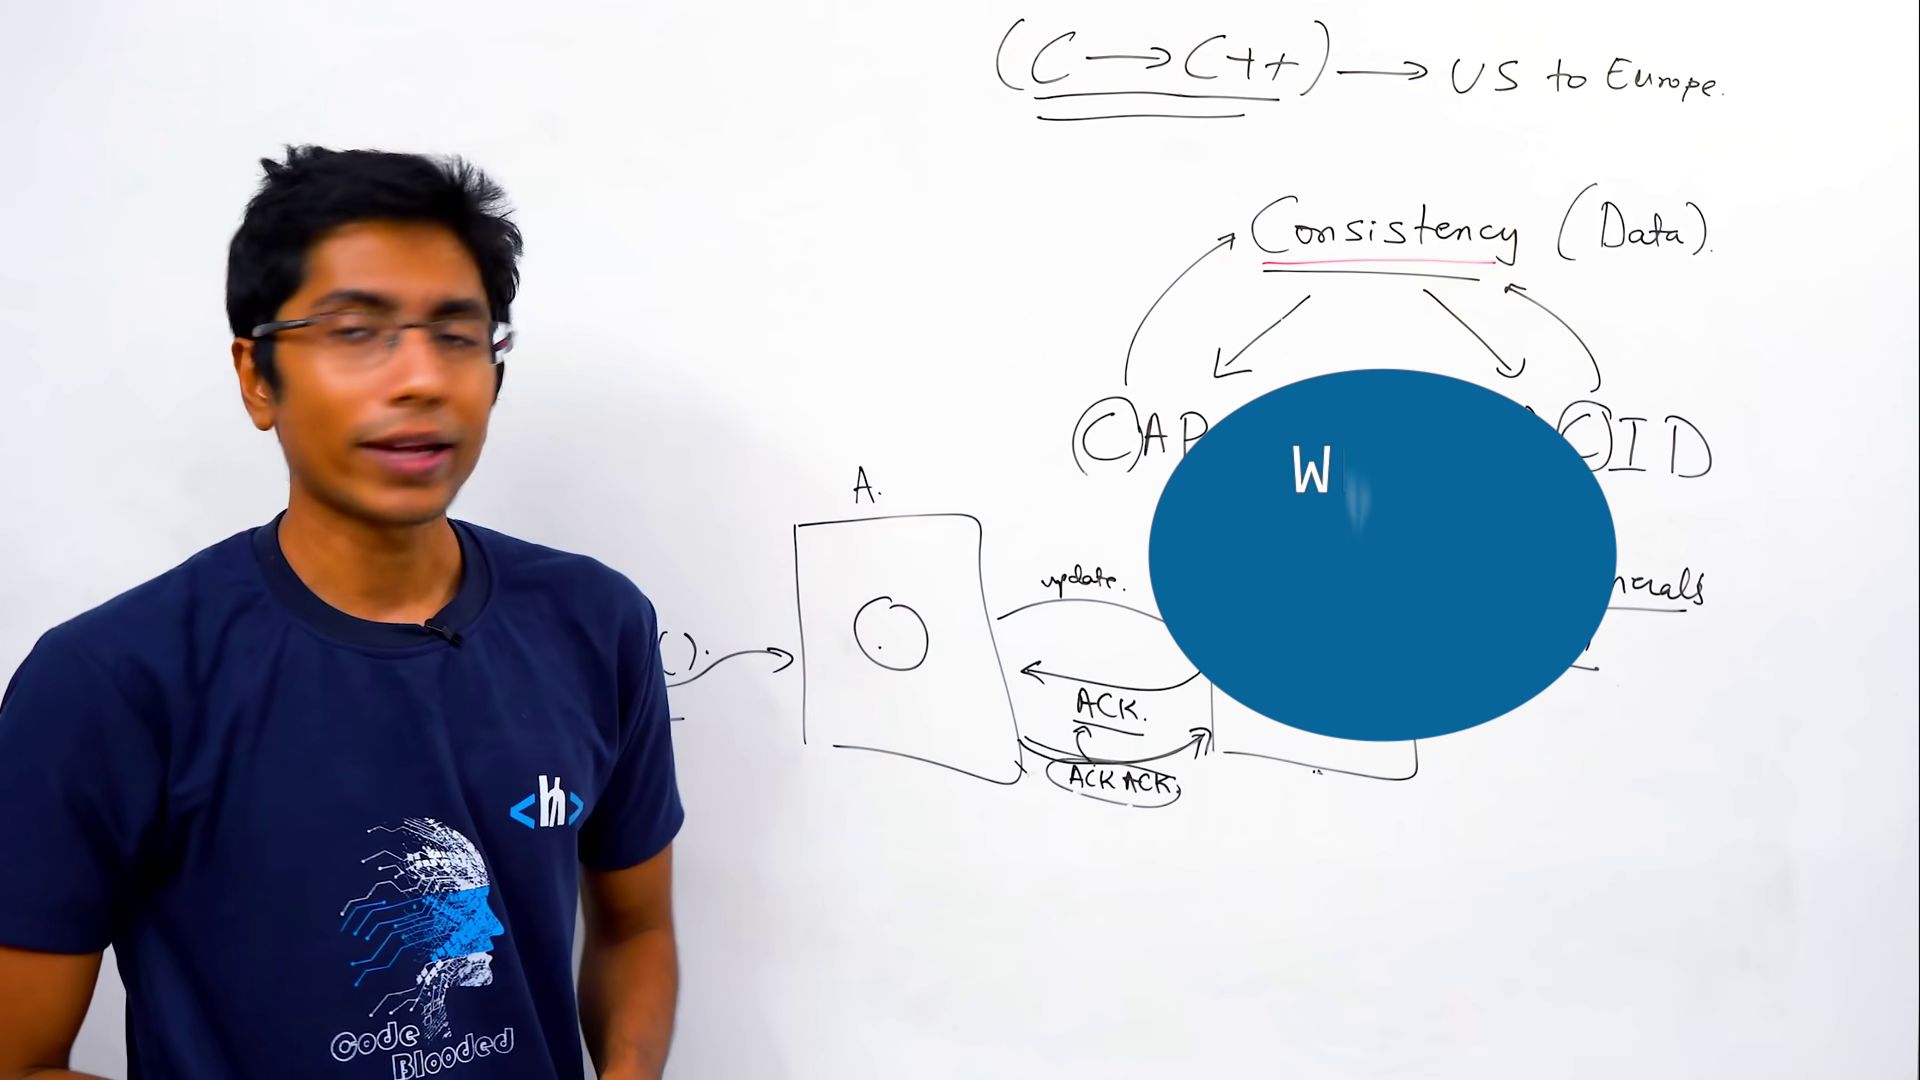 (C → C++) → US to Europe.
Consistency (Data).
CAP
CID
A.
W
update.
().
ACK.
ACK ACK.
<h>
Code
Blooded